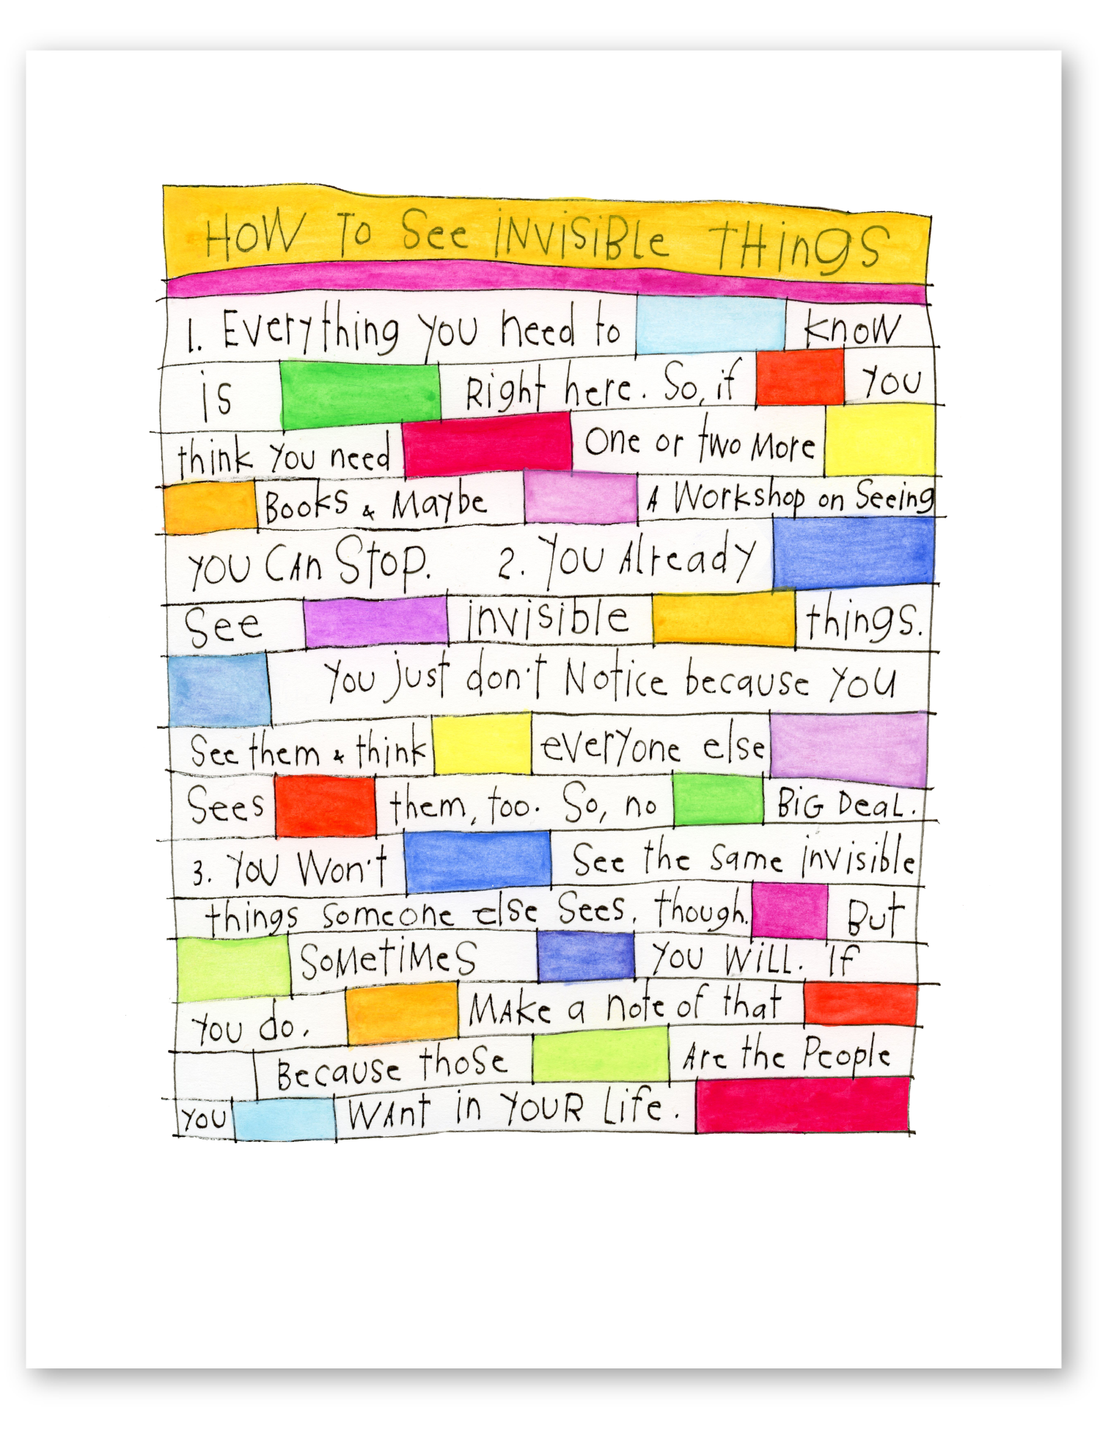 HOW To See iNViSiBLe THingS
1. Everything you need to know
is Right here. So, if you
think you need One or two More
Books & Maybe A Workshop on Seeing
you CAn Stop. 2. You Already
See invisible things.
You just don't Notice because you
See them & think everyone else
Sees them, too. So, no BiG DeaL.
3. You Won't See the same invisible
things someone else Sees, though. But
SoMetiMeS you WiLL. If
you do, MAke a note of that
Because those Are the People
you WAnt in YouR Life.